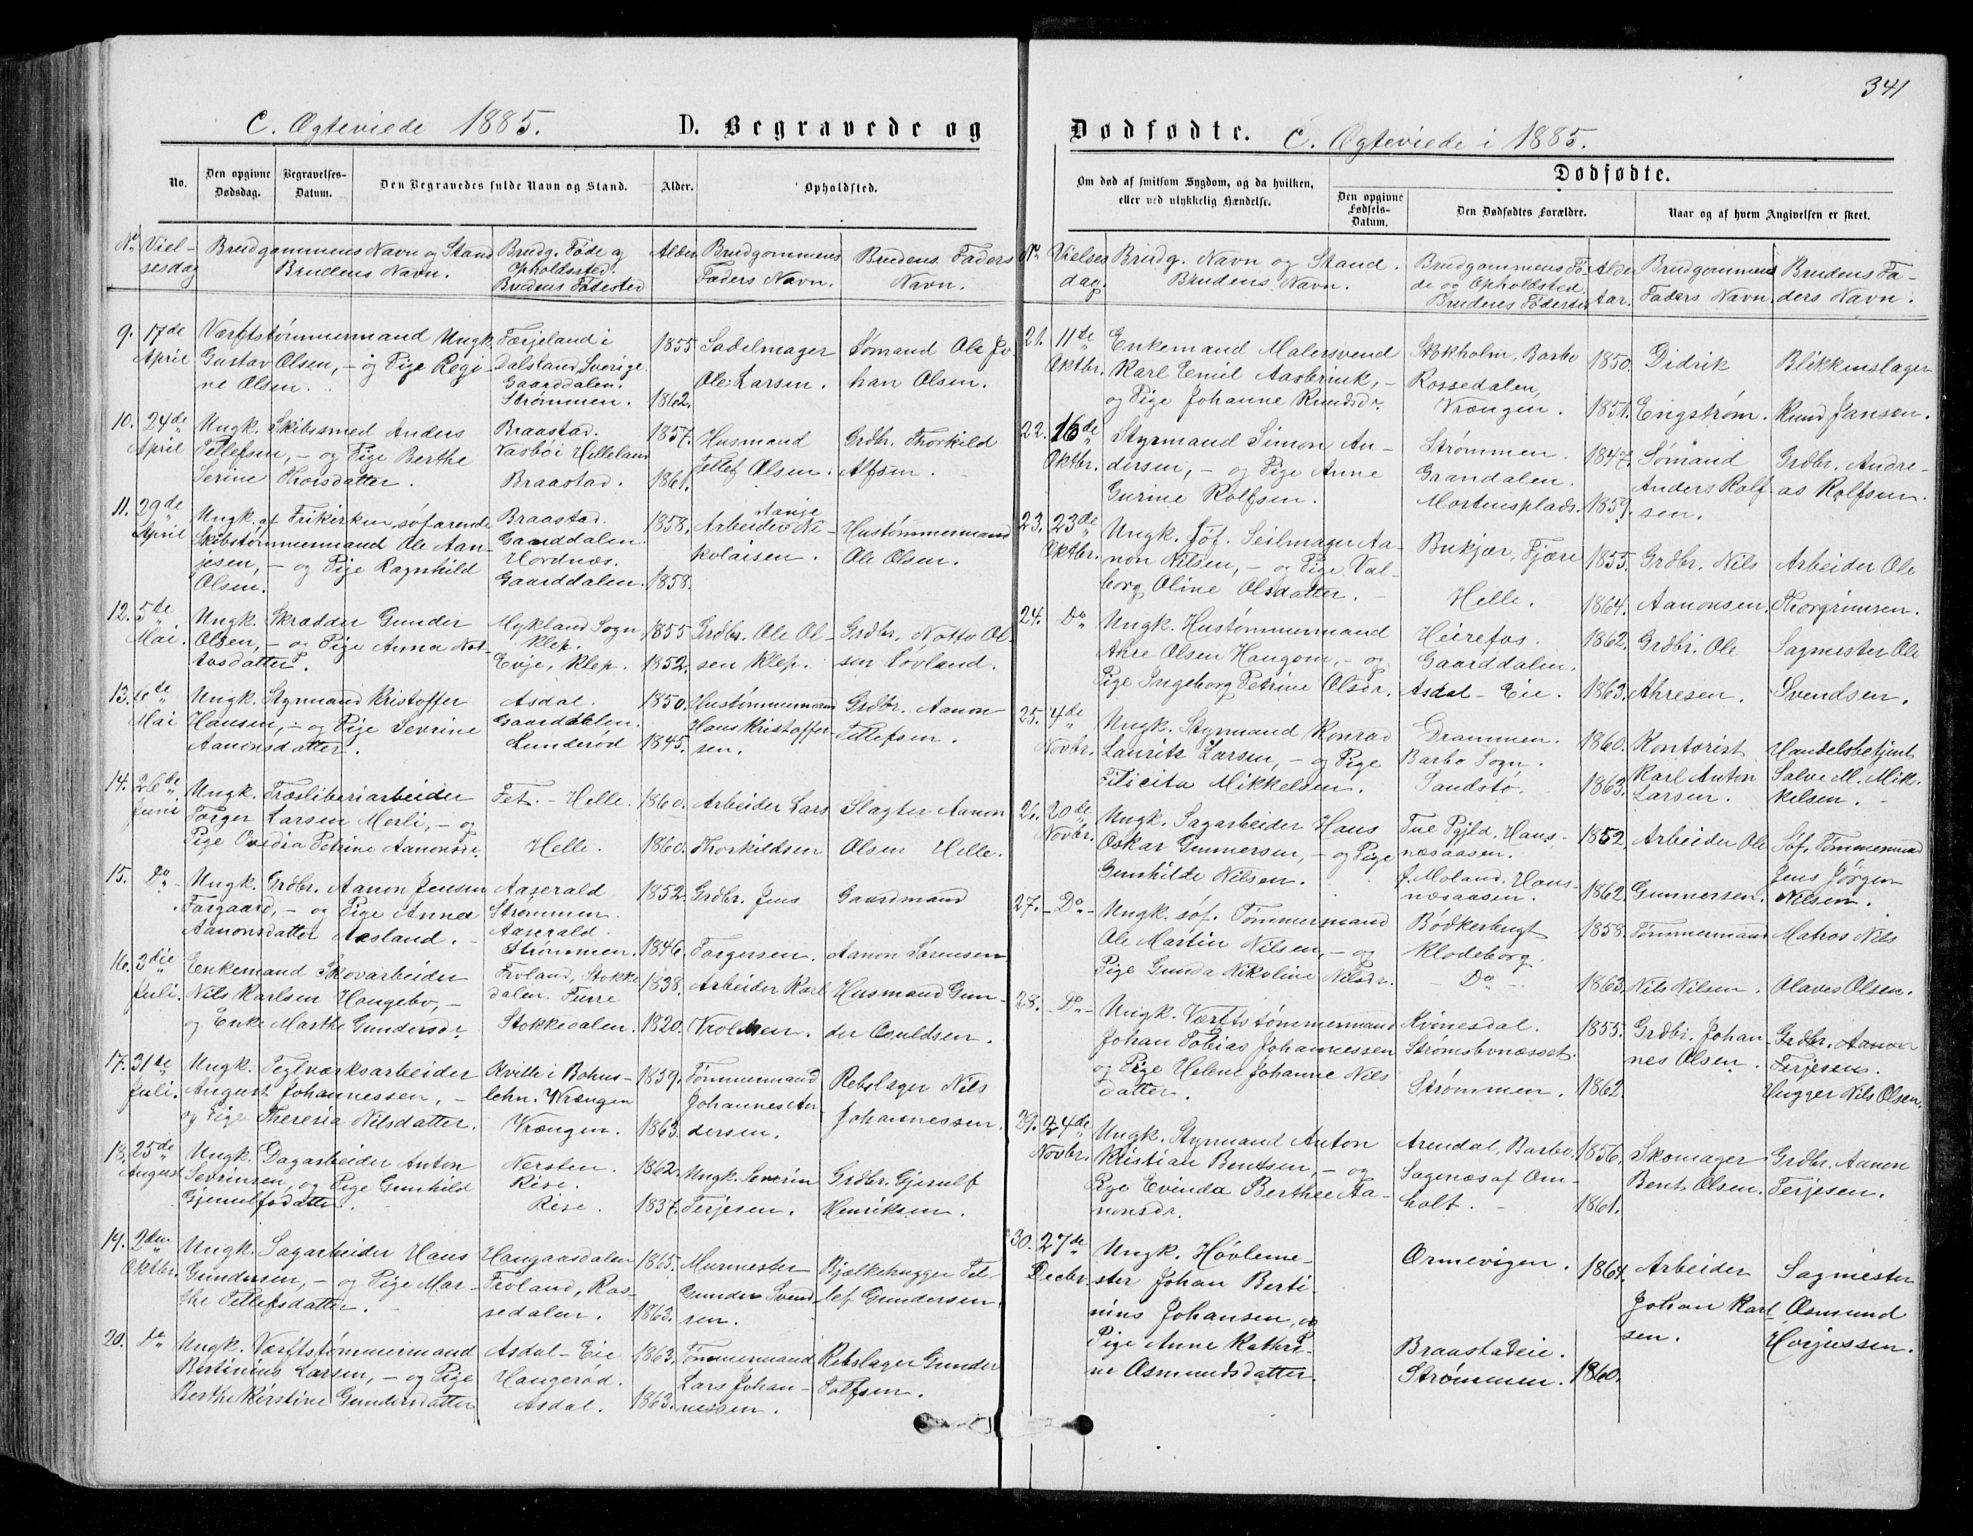 341
C. Ægteviede 1885.
D. Begravede og
Dødfødte.
C. Ægteviede i 1885.
No.
Den opgivne Dødsdag.
Begravelses-Datum.
Den Begravedes fulde Navn og Stand.
Alder.
Opholdsted.
Om død af smitsom Sygdom, og da hvilken,
eller ved ulykkelig Hændelse.
Dødfødte.
Den opgivne Fødsels-Datum.
Den Dødfødtes Forældre.
Naar og af hvem Angivelsen er skeet.
No. Vielsesdag
Brudgommens Navn og Stand
Brudens Navn.
Brudg. Føde og
Opholdssted.
Brudens Fødested
Alder
Brudgommens
Faders Navn.
Brudens Faders
Navn.
9. 17de April
Værftstømmermand Ungk.
Gustav Olsen, - og Pige Regi-
ne Olsen.
Færjeland i
Dalsland, Sverige.
Gaarddalen.
Strømmen.
1855.
1862.
Sadelmager
Ole Larsen.
Sømand Ole Jo-
han Olsen.
10. 24de April
Ungk. Skibssmed Anders
Tellefsen, - og Pige Berthe
Serine Thorsdatter.
Braastad.
Vasbø i Helleland
Braastad.
1857.
1861.
Husmand
Tellef Olsen.
Grdbr. Thorkild
Alfsen.
11. 29de April
Ungk. af Frikirken, søfarende
Skibstømmermand Ole Aan-
jesen, - og Pige Ragnhild
Olsen.
Braastad.
Gaarddalen.
Hordnæs.
Gaarddalen.
1858.
1858.
Aanje
Arbeider Ni-
kolaisen.
Hustømmermand
Ole Olsen.
12. 5te Mai.
Ungk. Skrædder Gunder
Olsen, - og Pige Anna Not-
tosdatter.
Mykland Sogn
Klep.
Evje, Klep.
1855
1852.
Grdbr. Ole Ol-
sen Klep.
Grdbr. Notto Ol-
sen Løvland.
13. 6te Mai
Ungk. Styrmand Kristoffer
Hansen, - og Pige Sevrine
Aanonsdatter.
Asdal.
Gaarddalen.
Lunderød
1850.
1845.
Hustømmermand
Hans Kristoffer-
sen.
Grdbr. Aanon
Tellefsen.
14. 26de Juni
Ungk. Træsliberiarbeider
Torger Larsen Merli, - og
Pige Ovedia Petrine Aanonsdr.
Fet. - Helle.
Helle.
1860.
1860.
Arbeider Lars
Thorkildsen
Slagter Aanon
Olsen Helle.
15. Do
Ungk. Grdbr. Aanon Jensen
Torgaard, - og Pige Anna
Aanonsdatter Aasland.
Aaserald
Strømmen.
Aaserald.
Strømmen.
1852.
1846.
Grdbr. Jens
Torgersen.
Gaardmand
Aanon Sørensen
16. 3die Juli.
Enkemand Skovarbeider
Nils Karlsen Haugebo, -
og Enke Marthe Gundersdr.
Froland, Stokke
dalen. Furre
Stokkedalen.
1838.
1820.
Arbeider Karl
Husmand Gun-
der Osuldsen.
17. 31te Juli.
Ungk. Teglværksarbeider
August Johannessen, -
og Pige Theresia Nilsdatter.
Kville i Bohus-
lehn. Vrængen
Vrængen.
1859.
1863.
Tømmermand
Johannes An-
dersen.
Rebslager Nils
Johannessen.
18. 25de August
Ungk. Dagarbeider Anton
Sevrinsen, og Pige Gunhild
Gjerulfsdatter.
Nersten.
Rise.
Rise.
1862.
1837.
Ungk. Severin
Terjesen.
Grdbr. Gjerulf
Henriksen.
19. 2den Oktbr.
Ungk. Sagarbeider Hans
Gundersen, - og Pige Mar-
the Tellefsdatter.
Haugaasdalen
Froland, Ros-
sedalen.
1865.
1863.
Murmester
Gunder Svend-
sen.
Bjælkehugger Tel-
lef Gundersen.
20. Do
Ungk. Værftstømmermand
Bertinius Larsen, - og Pige
Berthe Kirstine Gundersdatter
Asdal-Eie
Haugerød.
Asdal.
1863.
1863.
Tømmermand
Lars Johan-
nessen.
Rebslager Gunder
Tolfsen.
No. Vielses dag.
Brudg. Navn og Stand.
Brudens Navn.
Brudgommens Fø-
de og Opholdsted.
Brudens Fødested
Alder Aar.
Brudgommens
Faders Navn.
Brudens Fa-
ders Navn.
21. 11te Oktbr.
Enkemand Malersvend
Karl Emil Aasbrink, -
og Pige Johanne Knudsdr.
Stokholm, Barbo
Rossedalen,
Vrængen.
1850.
1851.
Didrik
Engstrøm.
Blikkenslager
Knud Jansen.
22. 16de Oktbr.
Styrmand Simon An-
dersen, - og Pige Anne
Gurine Rolfsen.
Strømmen.
Gaarddalen.
Mortensplads.
1847.
1859.
Sømand
Anders Rolf-
sen.
Grdbr. Andre-
as Rolfsen.
23. 23de Oktbr.
Ungk. Søf. Seilmager Aa-
non Nilsen, - og Pige Val-
borg Oline Olsdatter.
Bukjær, Fjære
Helle.
1855.
1864.
Grdbr. Nils
Aanonsen.
Arbeider Ole
Thorgrimsen.
24. Do
Ungk. Hustømmermand
Ahre Olsen Haugom, - og
Pige Ingeborg Petrine Olsdr.
Heirefos.
Gaarddalen.
Asdal-Eie.
1862.
1863.
Grdbr. Ole
Ahresen.
Sagmester Ole
Svendsen.
25. 4de Novbr.
Ungk. Styrmand Konrad
Laurits Larsen, - og Pige
Filicita Mikkelsen.
Drammen.
Barbo Sogn.
Sandstø.
1860.
1863.
Kontorist
Karl Anton
Larsen.
Handelsbetjent
Salve M. Mik-
kelsen.
26. 20de Novbr.
Ungk. Sagarbeider Hans
Oskar Gunnersen, - og Pige
Gunhilde Nilsen.
Hans-
næsaasen.
Ø. Moland. Hans-
næsaasen.
1852.
1862.
Arbeider Ole
Gunnersen.
Søf. Tømmermand
Jens Jørgen
Nilsen.
27. Do
Ungk. søf. Tømmermand
Ole Martin Nilsen, - og
Pige Gunda Nikoline Nilsdr.
Bødkerbugt
Klodeborg.
Do
1858.
1863.
Tømmermand
Nils Nilsen.
Matros Nils
Olaves Olsen.
28. Do
Ungk. Værftstømmermand
Johan Tobias Johannessen
og Pige Helene Johanne Nils
datter.
Kvinesdal.
Strømsbunæsset.
Strømmen.
1855.
1862.
Grdbr. Johan
nes Olsen.
Grdbr. Aanon
Terjesen.
Hugger Nils Olsen.
29. 24de Novbr.
Ungk. Styrmand Anton
Kristian Bentsen, - og
Pige Evinda Berthee Aa-
nonsdr.
Arendal, Barbo.
Sagenæs af Om-
holt.
1856.
1861.
Skomager
Bent Olsen.
Grdbr. Aanon
Terjesen.
30. 27de Decbr
Ungk. Høvleme-
ster Johan Berti-
nius Johansen, og
Pige Anne Kathri-
ne Osmundsdatter.
Ormevigen.
Braastadeie.
Strømmen.
1864.
1860.
Arbeider
Johan Karl-
sen.
Sagmester
Osmund